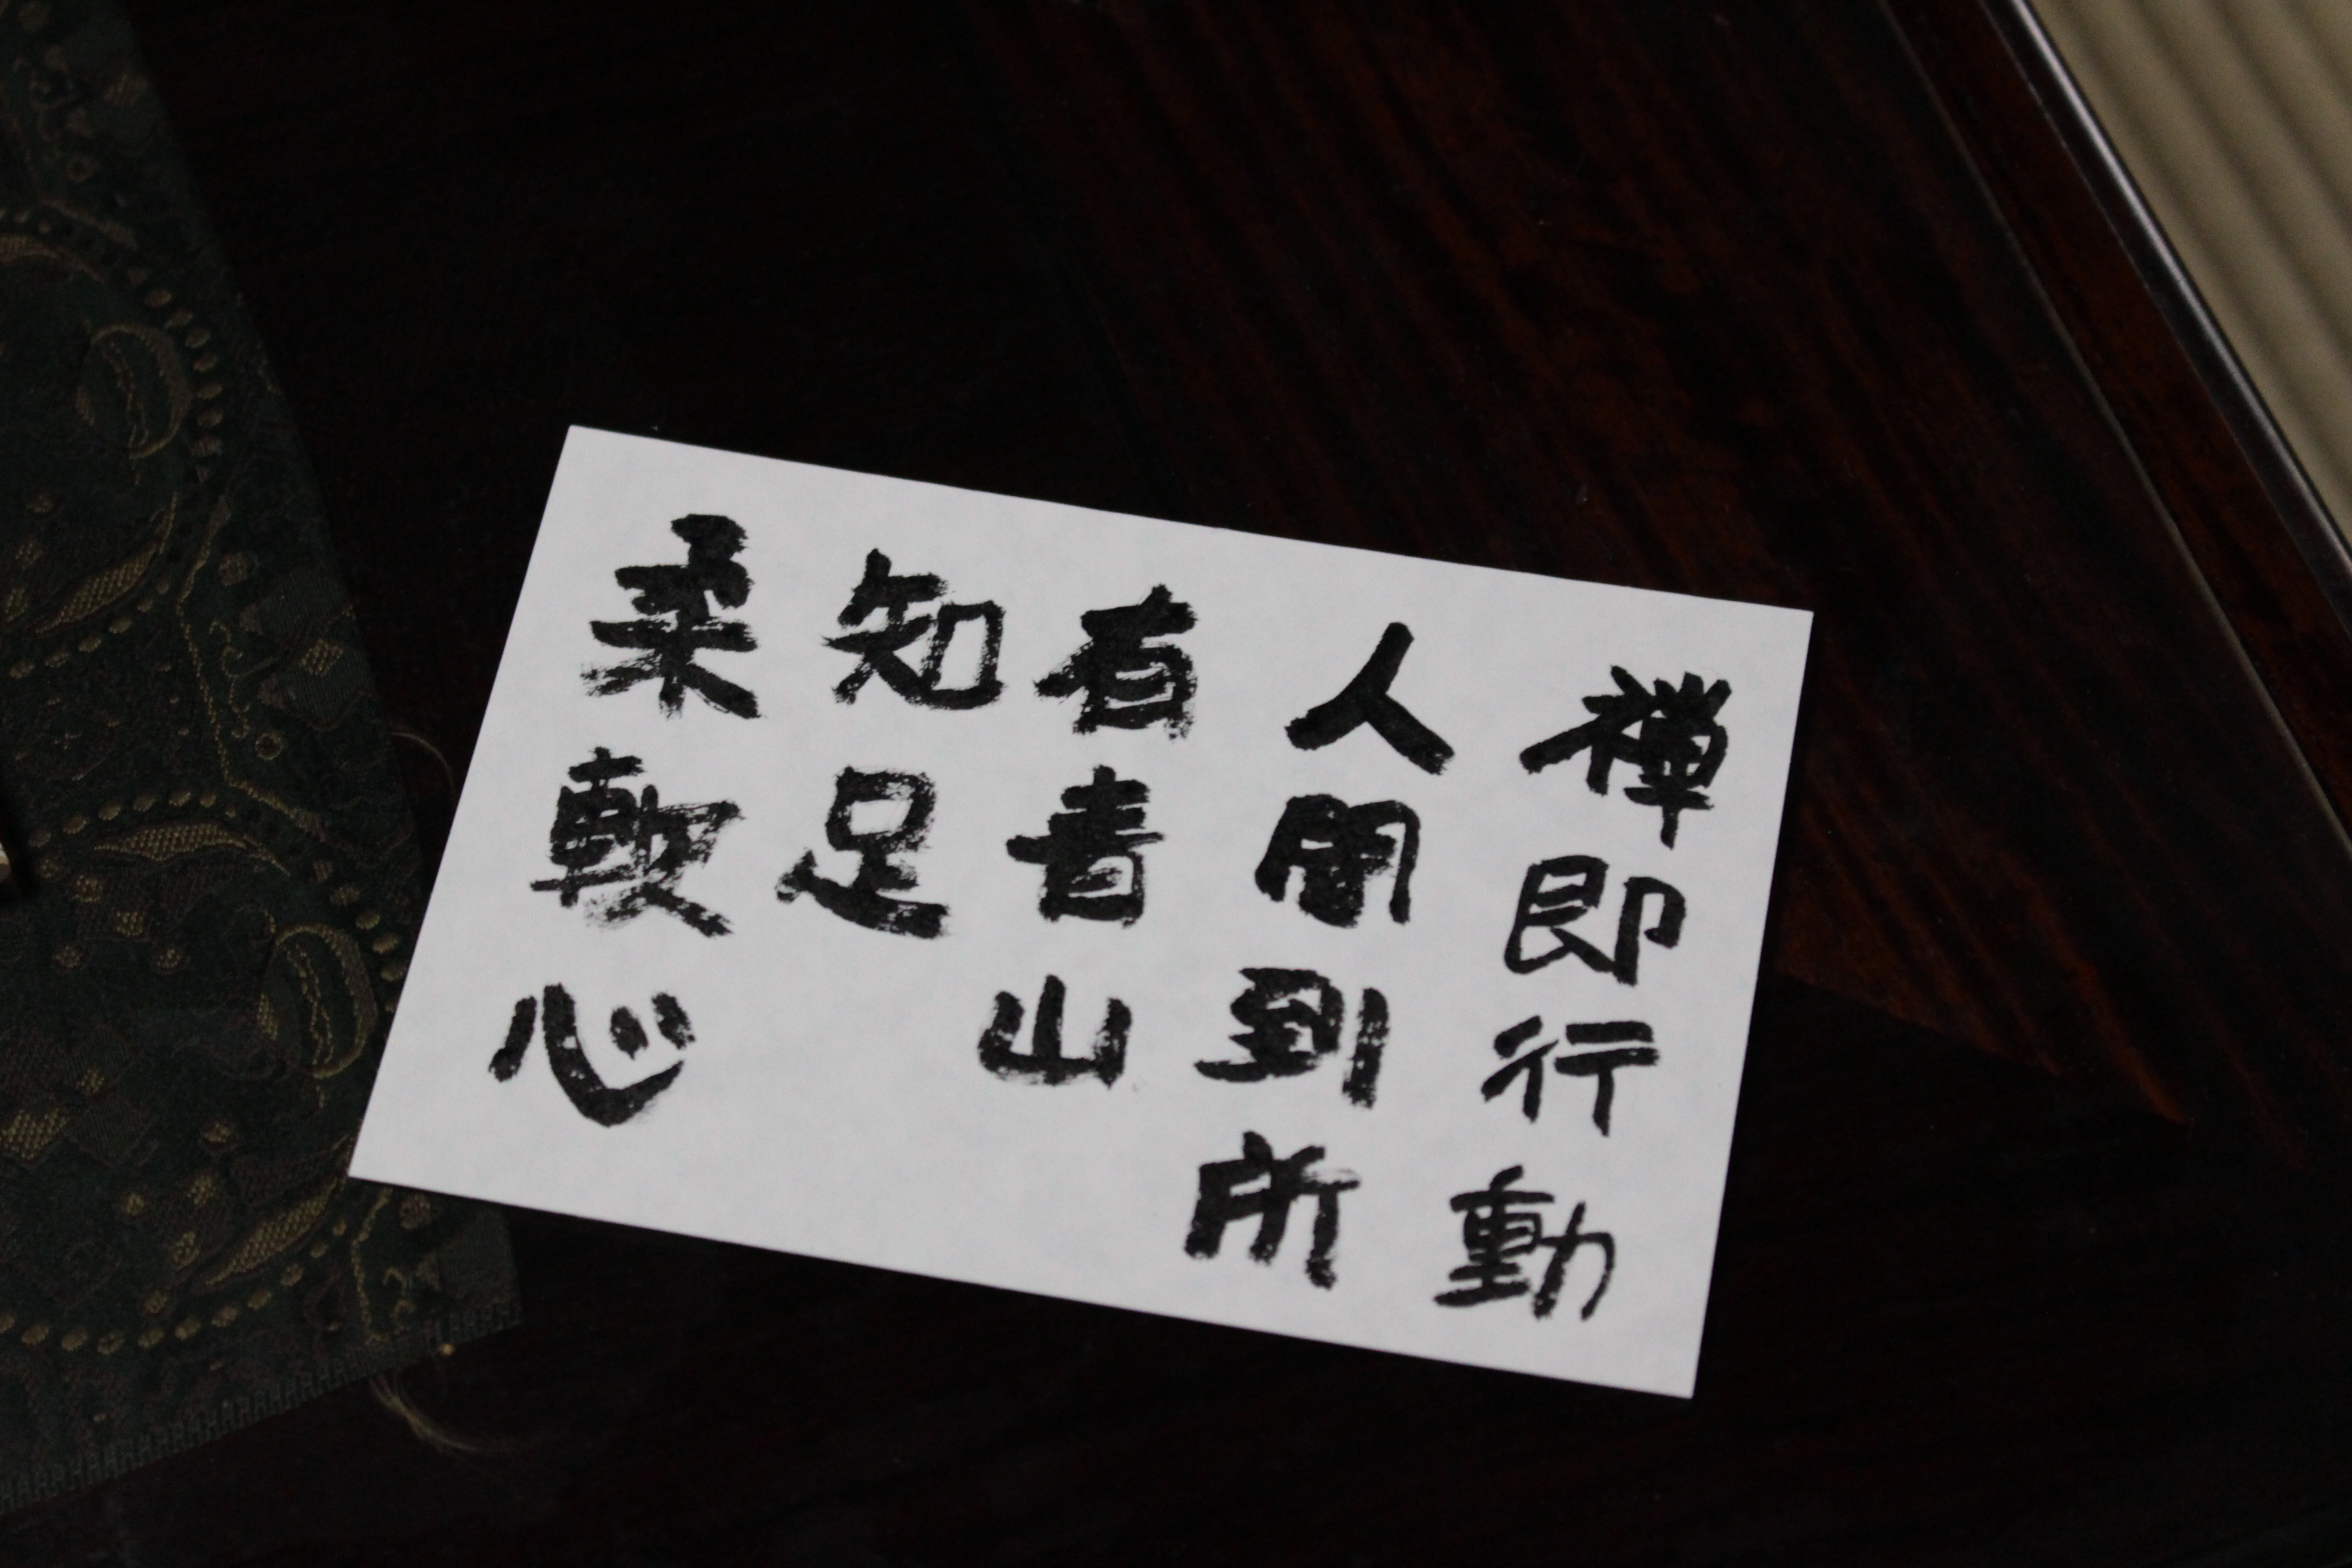 禅即行動
人間到所
有青山
知足
柔軟心